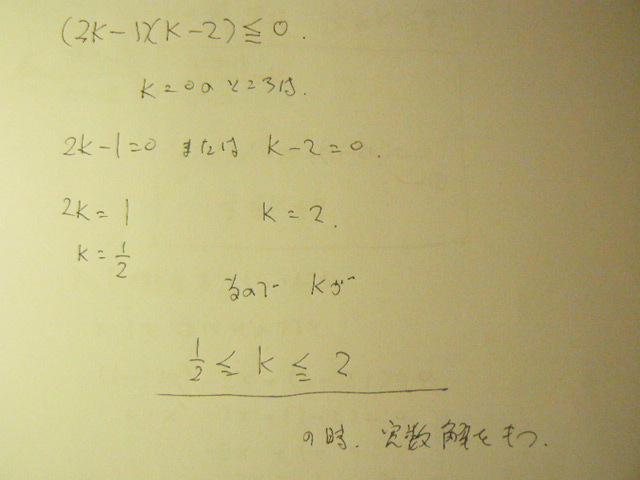 (2k-1)(k-2)≦0.
k=0のところは.
2k-1=0 または k-2=0.
2k=1 k=2.
k=1/2
なので kが
1/2≦k≦2
の時、実数解をもつ.